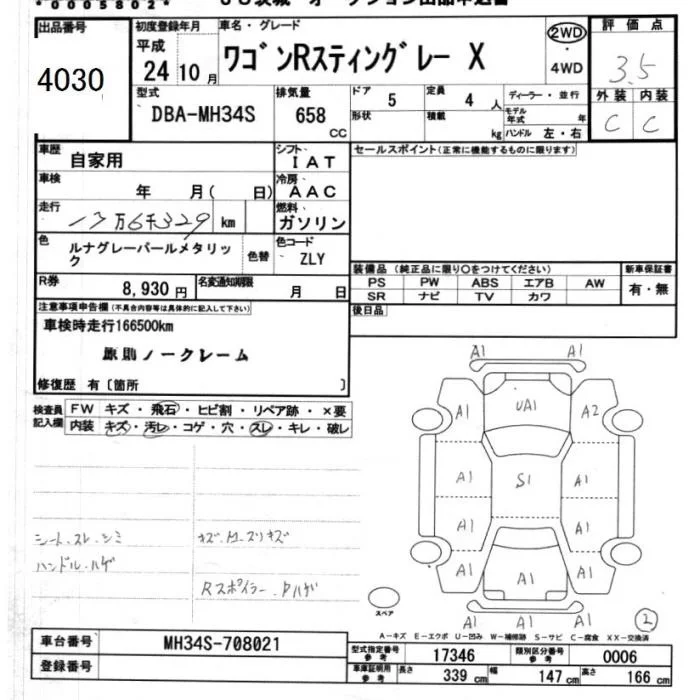 *0005802*
出品番号
4030
初度登録年月
平成
24 10 月
車名・グレード
ワゴンRスティングレー X
2WD
・
4WD
評価点
3.5
外装 内装
C C
型式
DBA-MH34S
排気量
658
CC
ドア
5
定員
4 人
形状
積載
kg
ディーラー・並行
モデル年式 年
ハンドル 左・右
車歴
自家用
シフト
IAT
車検
年 月( 日)
冷房
AAC
走行
万6千329 km
燃料
ガソリン
色
ルナグレーパールメタリック
色替
色コード
ZLY
R券
8,930円
名変通知期限
月 日
セールスポイント(正常に機能するものに限ります)
装備品 (純正品に限り○をつけてください)
PS PW ABS エアB AW
SR ナビ TV カワ
新車保証書
有・無
後日品
注意事項申告欄(不具合内容等は具体的に記入して下さい)
車検時走行166500km
原則ノークレーム
修復歴 有〔箇所 〕
検査員記入欄
FW キズ・飛石・ヒビ割・リペア跡・×要
内装 キズ・汚レ・コゲ・穴・スレ・キレ・破レ
シート.スレ.シミ
ハンドル.ハゲ
Rスポイラー
A1 A1
A1 UA1 A2
A1 S1 A1
A1 A1
A1 A1 A1
A1 A1
スペア
2
A-キズ E-エクボ U-凹み W-補修跡 S-サビ C-腐食 XX-交換済
車台番号
MH34S-708021
登録番号
型式指定番号 参考
17346
類別区分番号 参考
0006
車庫証明用 参考
長さ 339 cm
幅 147 cm
高さ 166 cm